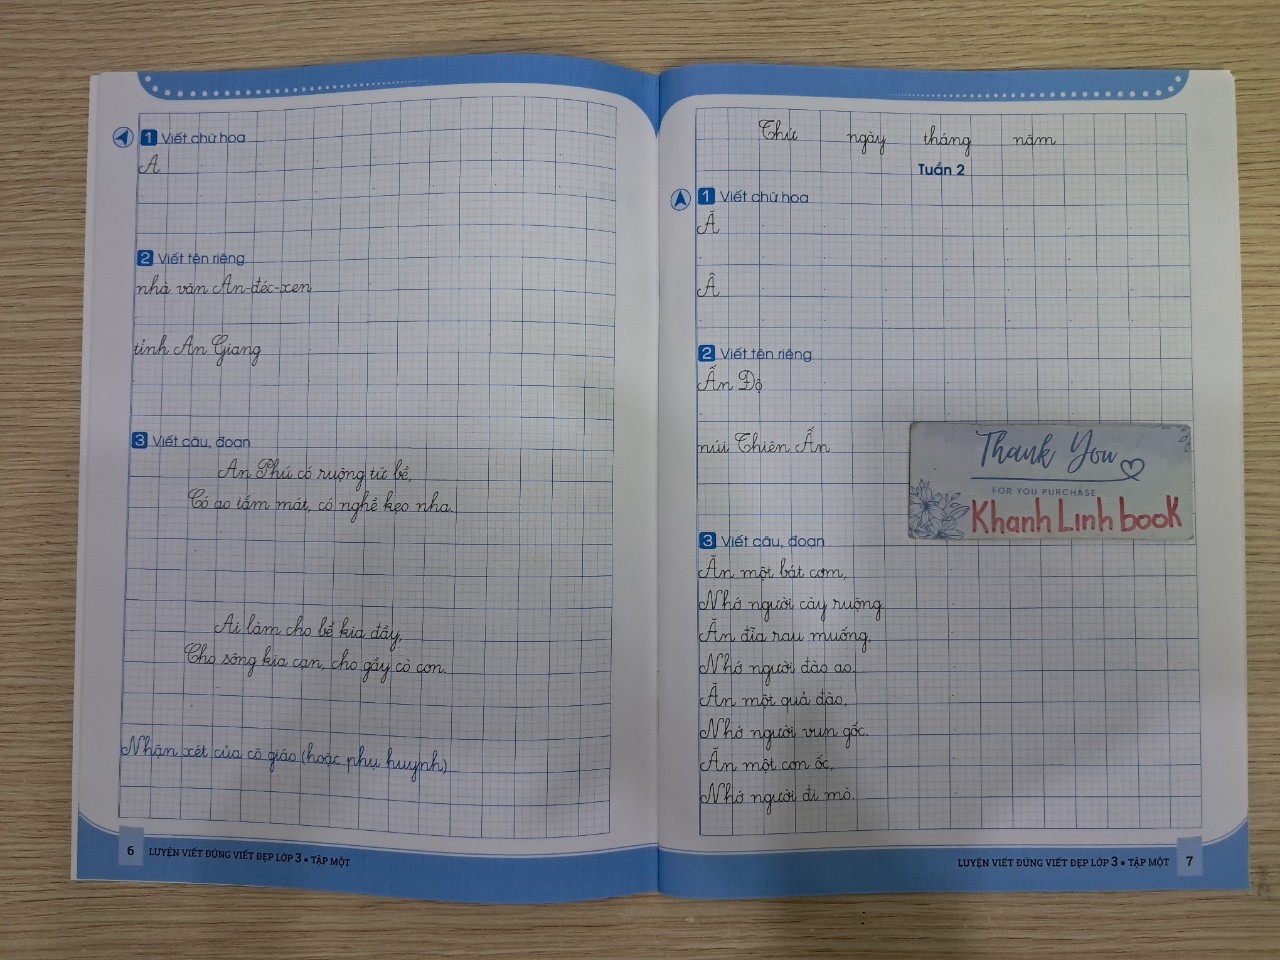 1 Viết chữ hoa
A
2 Viết tên riêng
nhà văn An-đéc-xen
tỉnh An Giang
3 Viết câu, đoạn
An Phú có ruộng tứ bề,
Có ao tắm mát, có nghề kẹo nha.
Ai làm cho bể kia đầy,
Cho sông kia cạn, cho gầy cò con.
Nhận xét của cô giáo (hoặc phụ huynh)
6 LUYỆN VIẾT ĐÚNG VIẾT ĐẸP LỚP 3 • TẬP MỘT
Thứ ngày tháng năm
Tuần 2
1 Viết chữ hoa
Ă
Â
2 Viết tên riêng
Ấn Độ
núi Thiên Ấn
Thank You
FOR YOU PURCHASE
Khanh Linh book
3 Viết câu, đoạn
Ăn một bát cơm,
Nhớ người cày ruộng
Ăn đĩa rau muống,
Nhớ người đào ao.
Ăn một quả đào,
Nhớ người vun gốc.
Ăn một con ốc,
Nhớ người đi mò.
LUYỆN VIẾT ĐÚNG VIẾT ĐẸP LỚP 3 • TẬP MỘT 7